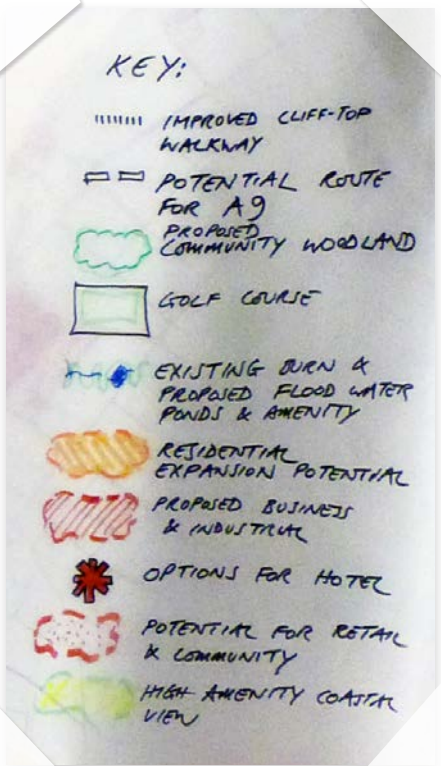 KEY:
IMPROVED CLIFF-TOP
WALKWAY
POTENTIAL ROUTE
FOR A9
PROPOSED
COMMUNITY WOODLAND
GOLF COURSE
EXISTING BURN &
PROPOSED FLOOD WATER
PONDS & AMENITY
RESIDENTIAL
EXPANSION POTENTIAL
PROPOSED BUSINESS
& INDUSTRIAL
OPTIONS FOR HOTEL
POTENTIAL FOR RETAIL
& COMMUNITY
HIGH AMENITY COASTAL
VIEW